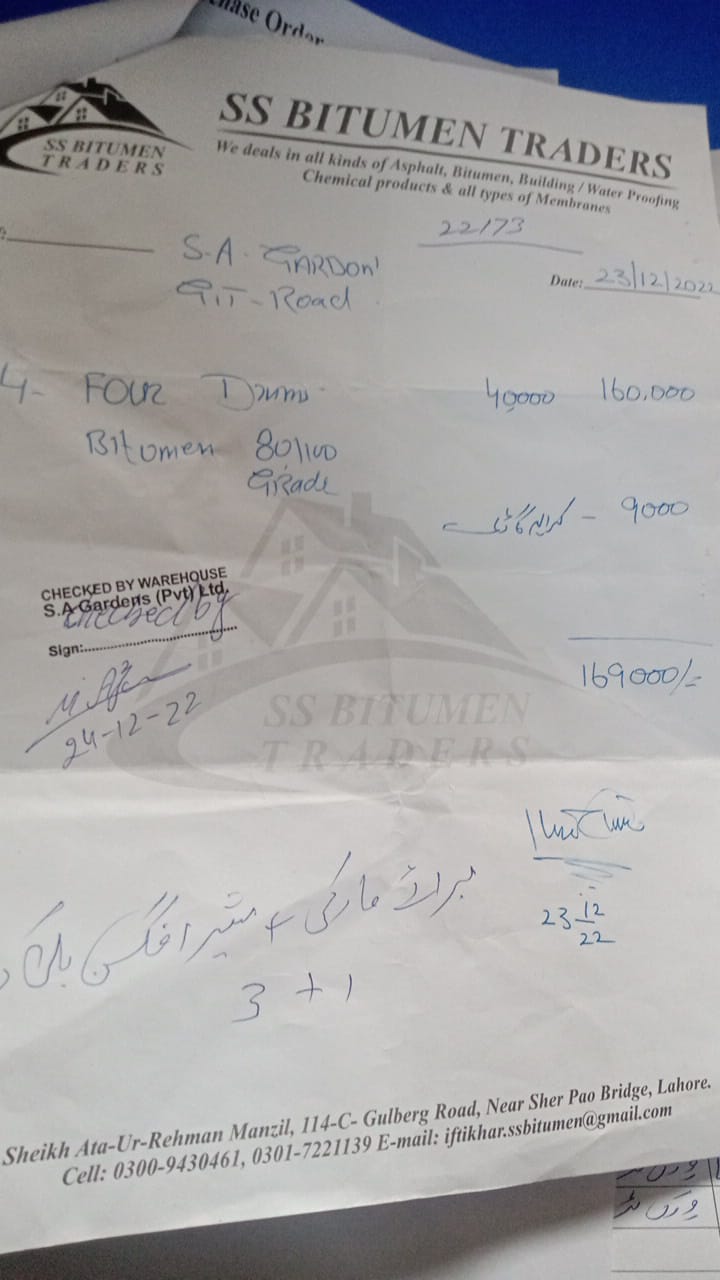 hase Order
SS BITUMEN
TRADERS
SS BITUMEN TRADERS
We deals in all kinds of Asphalt, Bitumen, Building / Water Proofing
Chemical products & all types of Membranes
22173
S.A. GARDON
G.T-Road
Date: 23/12/2022
4- FOUR Drums 40000 160,000
Bitumen 80/100
GRade
کرایہ گاڑی - 9000
CHECKED BY WAREHOUSE
S.A Gardens (Pvt) Ltd.
checked by
Sign:
24-12-22
169000/-
SS BITUMEN
TRADERS
23 12
22
برائے مارکی + شیر افگن بلاک
3 + 1
Sheikh Ata-Ur-Rehman Manzil, 114-C- Gulberg Road, Near Sher Pao Bridge, Lahore.
Cell: 0300-9430461, 0301-7221139 E-mail: iftikhar.ssbitumen@gmail.com